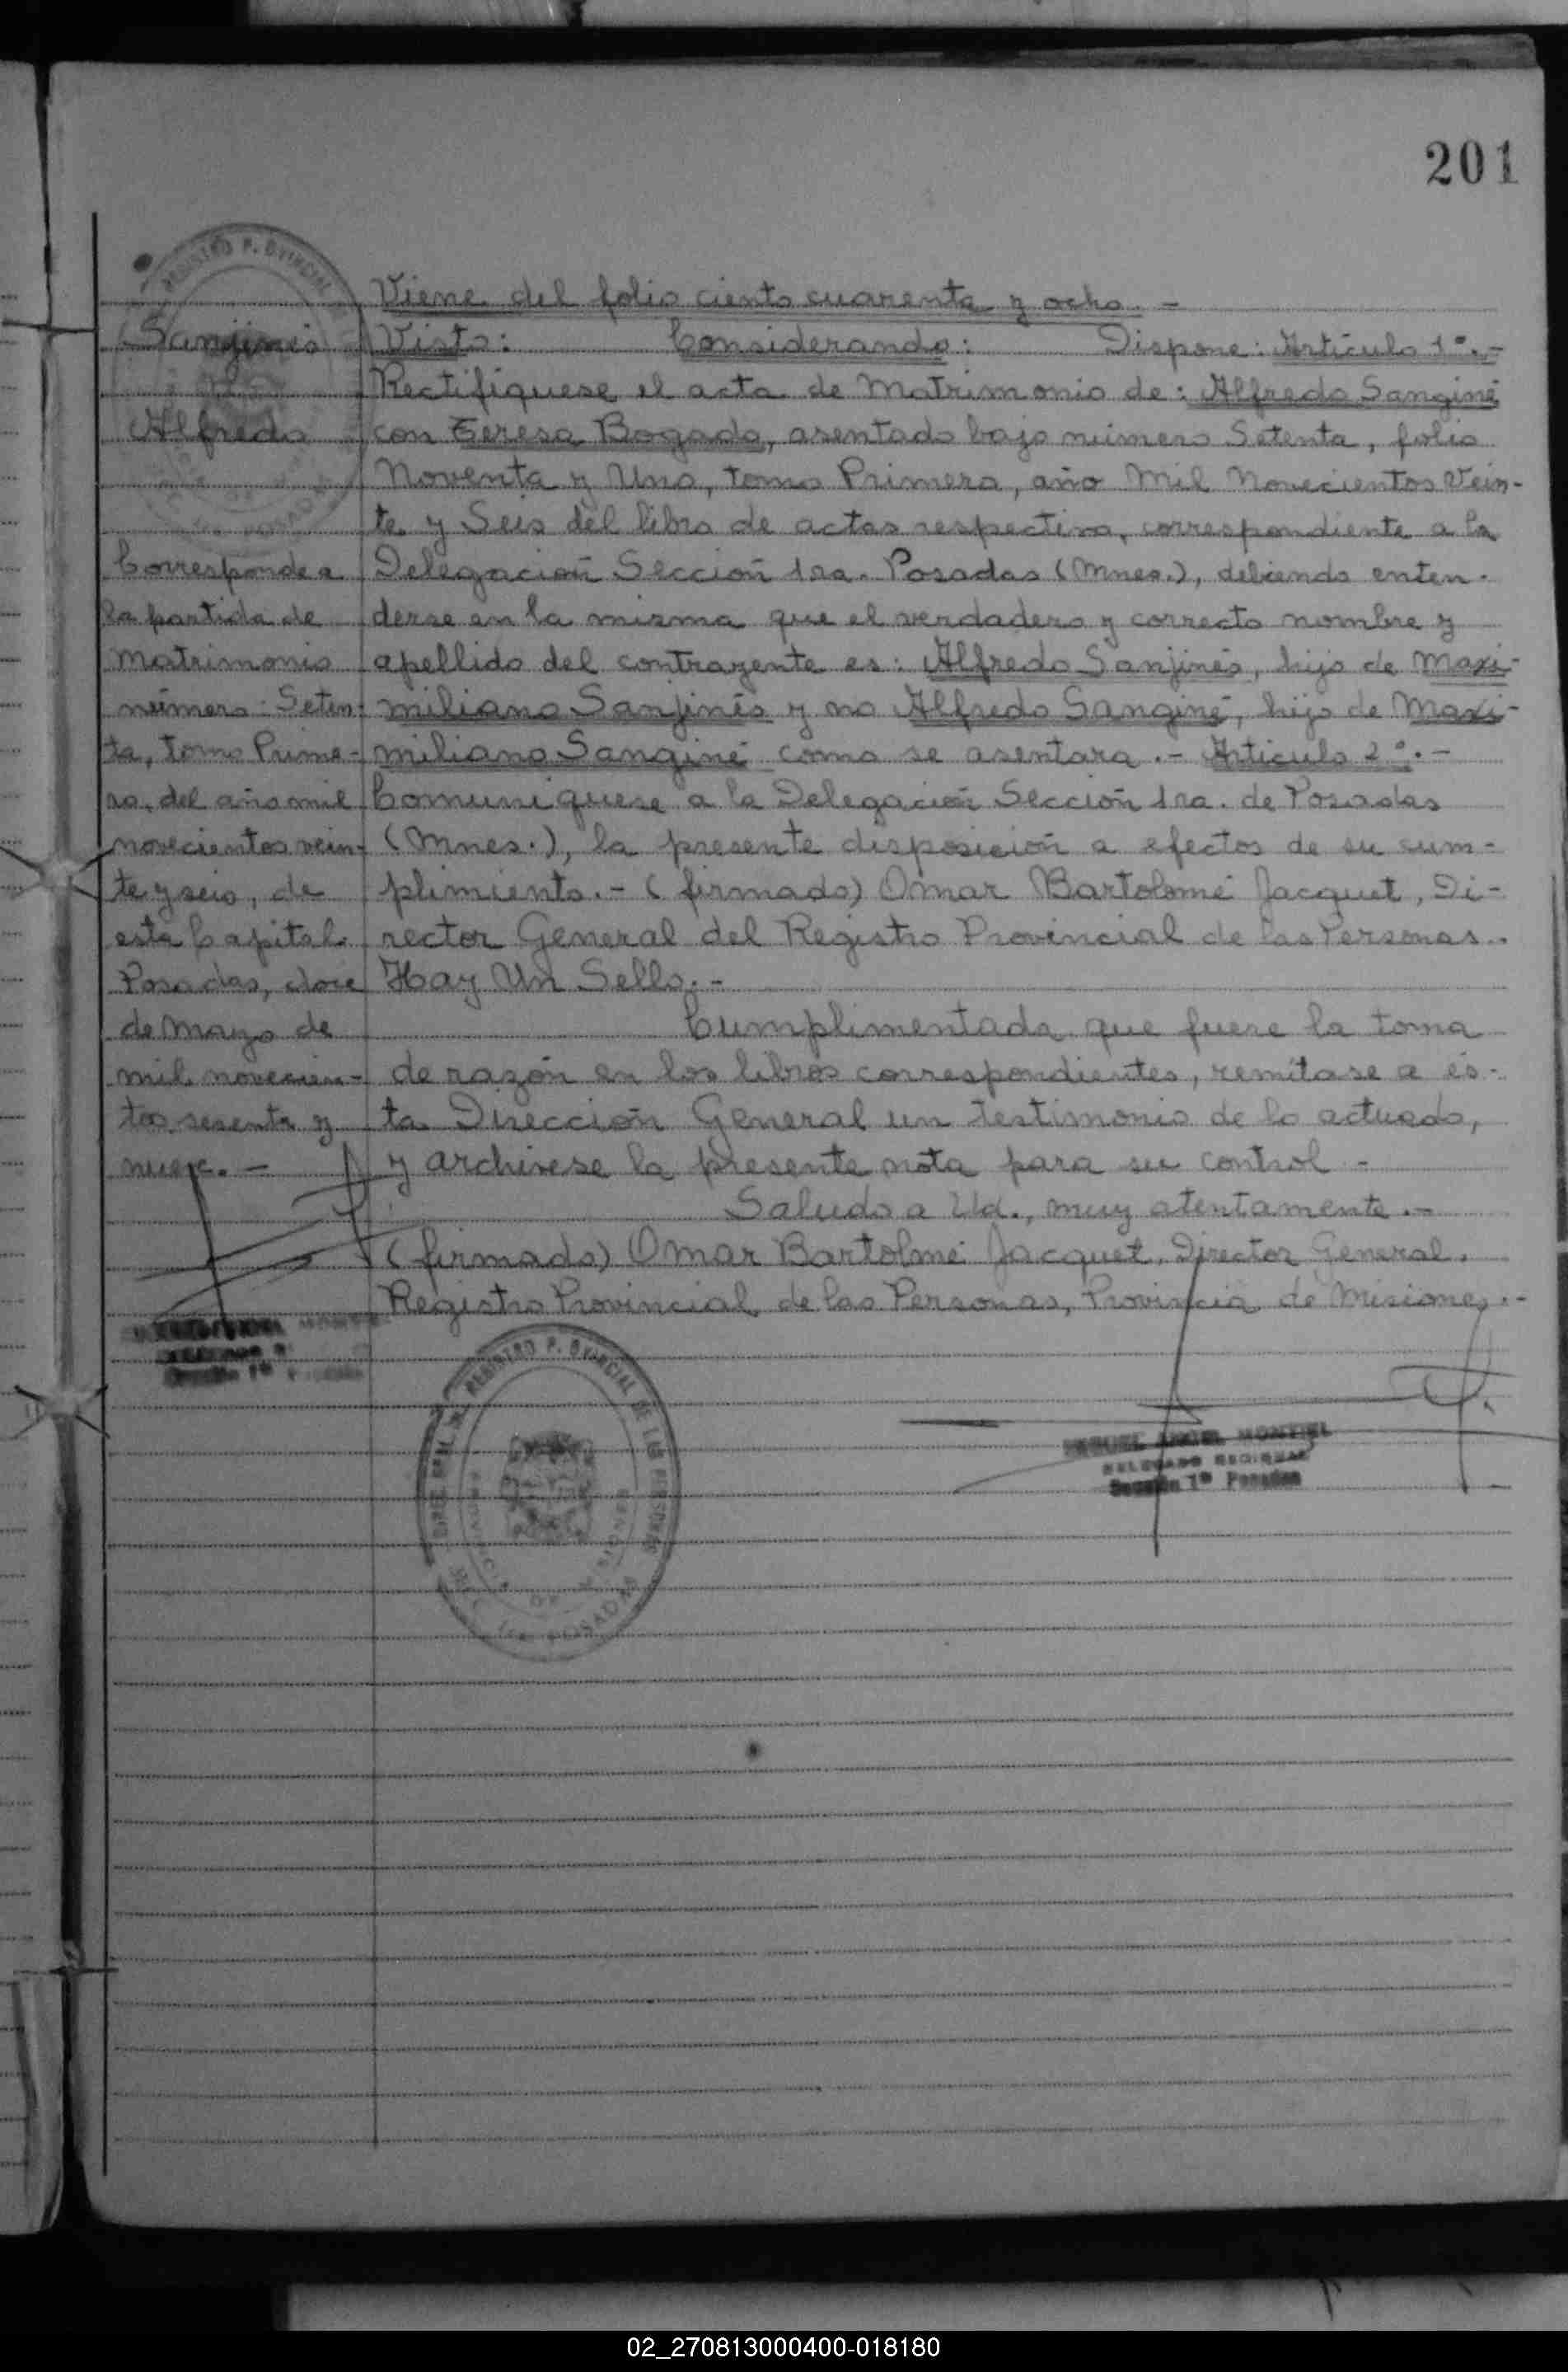 201
Viene del folio ciento cuarenta y ocho. -
Sanjinés
Alfredo
Corresponde a
la partida de
Matrimonio
número: Seten-
ta, Tomo Prime-
ro, del año mil
novecientos vein-
te y seis, de
esta Capital.
Posadas, doce
de Mayo de
mil novecien-
tos sesenta y
nueve. -
Visto: Considerando: Dispone: Artículo 1º.-
Rectifíquese el acta de Matrimonio de: Alfredo Sanginé
con Teresa Bogado, asentado bajo número Setenta, folio
Noventa y Uno, tomo Primero, año Mil Novecientos Vein-
te y Seis del libro de actas respectivo, correspondiente a la
Delegación Sección 1ra. Posadas (Mnes.), debiendo enten-
derse en la misma que el verdadero y correcto nombre y
apellido del contrayente es: Alfredo Sanjinés, hijo de Maxi-
miliano Sanjinés y no Alfredo Sanginé, hijo de Maxi-
miliano Sanginé como se asentara.- Artículo 2º.-
Comuniquese a la Delegación Sección 1ra. de Posadas
(Mnes.), la presente disposición a efectos de su cum-
plimiento.- (firmado) Omar Bartolomé Jacquet, Di-
rector General del Registro Provincial de las Personas.-
Hay Un Sello.-
Cumplimentada que fuere la toma
de razón en los libros correspondientes, remítase a és-
ta Dirección General un testimonio de lo actuado,
y archívese la presente nota para su control -
Saludo a Ud., muy atentamente.-
(firmado) Omar Bartolmé Jacquet, Director General.
Registro Provincial de las Personas, Provincia de Misiones.-
MIGUEL ANGEL MONTIEL
DELEGADO REGIONAL
Sección 1ª Posadas
REGISTRO PROVINCIAL DE LAS PERSONAS
PROVINCIA DE MISIONES
POSADAS
02_270813000400-018180